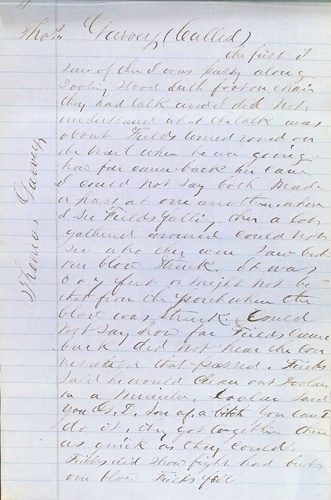 Thos. Garvey (Called)
the first I
saw of them I was passing along
Dooling stood with foot on chain
they had talk and I did not
understand what the talk was
about Fields turned round on
the trail when he was going
how far came back he came
I could not say both made
a pass at one another when
I see Fields falling then a lot
gathered around could not
see who they were saw but
one blow struck. it was
from the porch when the
blow was struck. Could
not say how far Fields came
back did not hear the con
versation that passed. Fields
said he would clean out Doolan
in a minute. Doolan said
you G. D. son of a bitch you can't
do it. they got together then
as quick as they could.
Fields did show fight had but
one blow Fields fell
Thomas Garvey